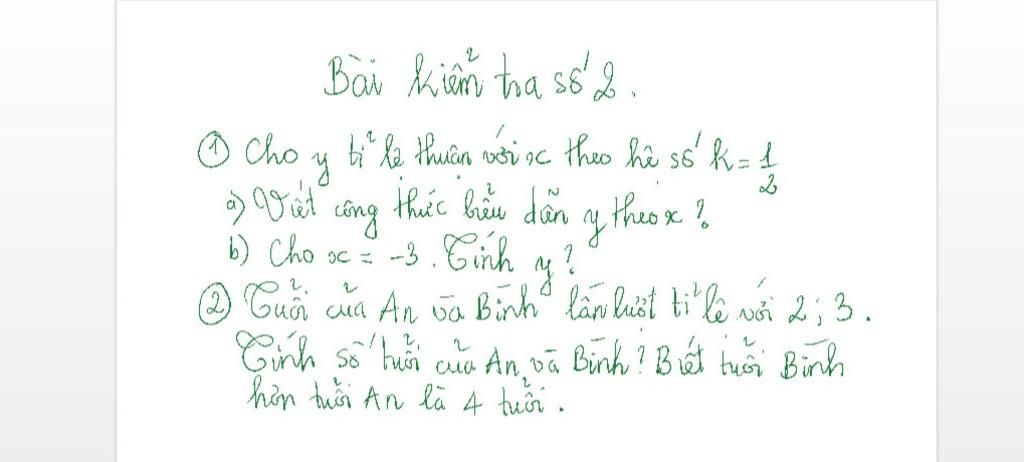 Bài kiểm tra số 2.
① Cho y tỉ lệ thuận với x theo hệ số k = 1/2
a) Viết công thức biểu diễn y theo x ?
b) Cho x = -3. Tính y ?
② Tuổi của An và Bình lần lượt tỉ lệ với 2 ; 3 .
Tính số tuổi của An và Bình ? Biết tuổi Bình
hơn tuổi An là 4 tuổi .